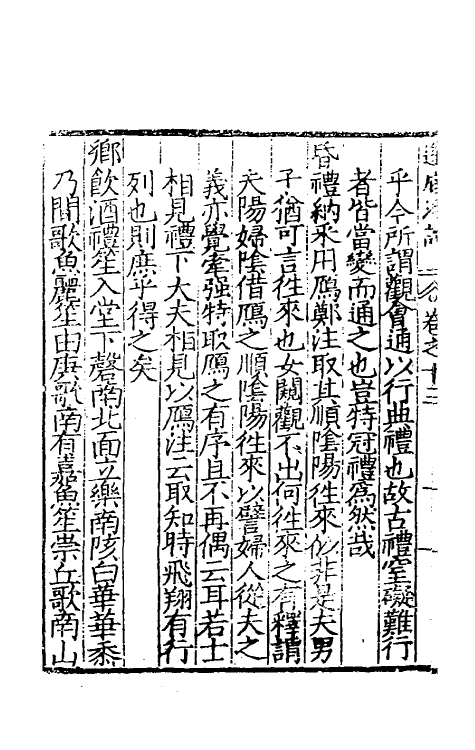 卷之十三
乎今所謂觀會通以行典禮也故古禮窒礙難行
者皆當變而通之也豈特冠禮爲然哉
昏禮納采用鴈鄭注取其順陰陽徃來似非是夫男
子猶可言徃來也女闚觀不出何徃來之有釋謂
夫陽婦陰借鴈之順陰陽徃來以譬婦人從夫之
義亦覺牽强特取鴈之有序且不再偶云耳若士
相見禮下大夫相見以鴈注云取知時飛翔有行
列也則庶乎得之矣
鄉飲酒禮笙入堂下磬南北面立樂南陔白華華黍
乃間歌魚麗笙由庚歌南有嘉魚笙崇丘歌南山